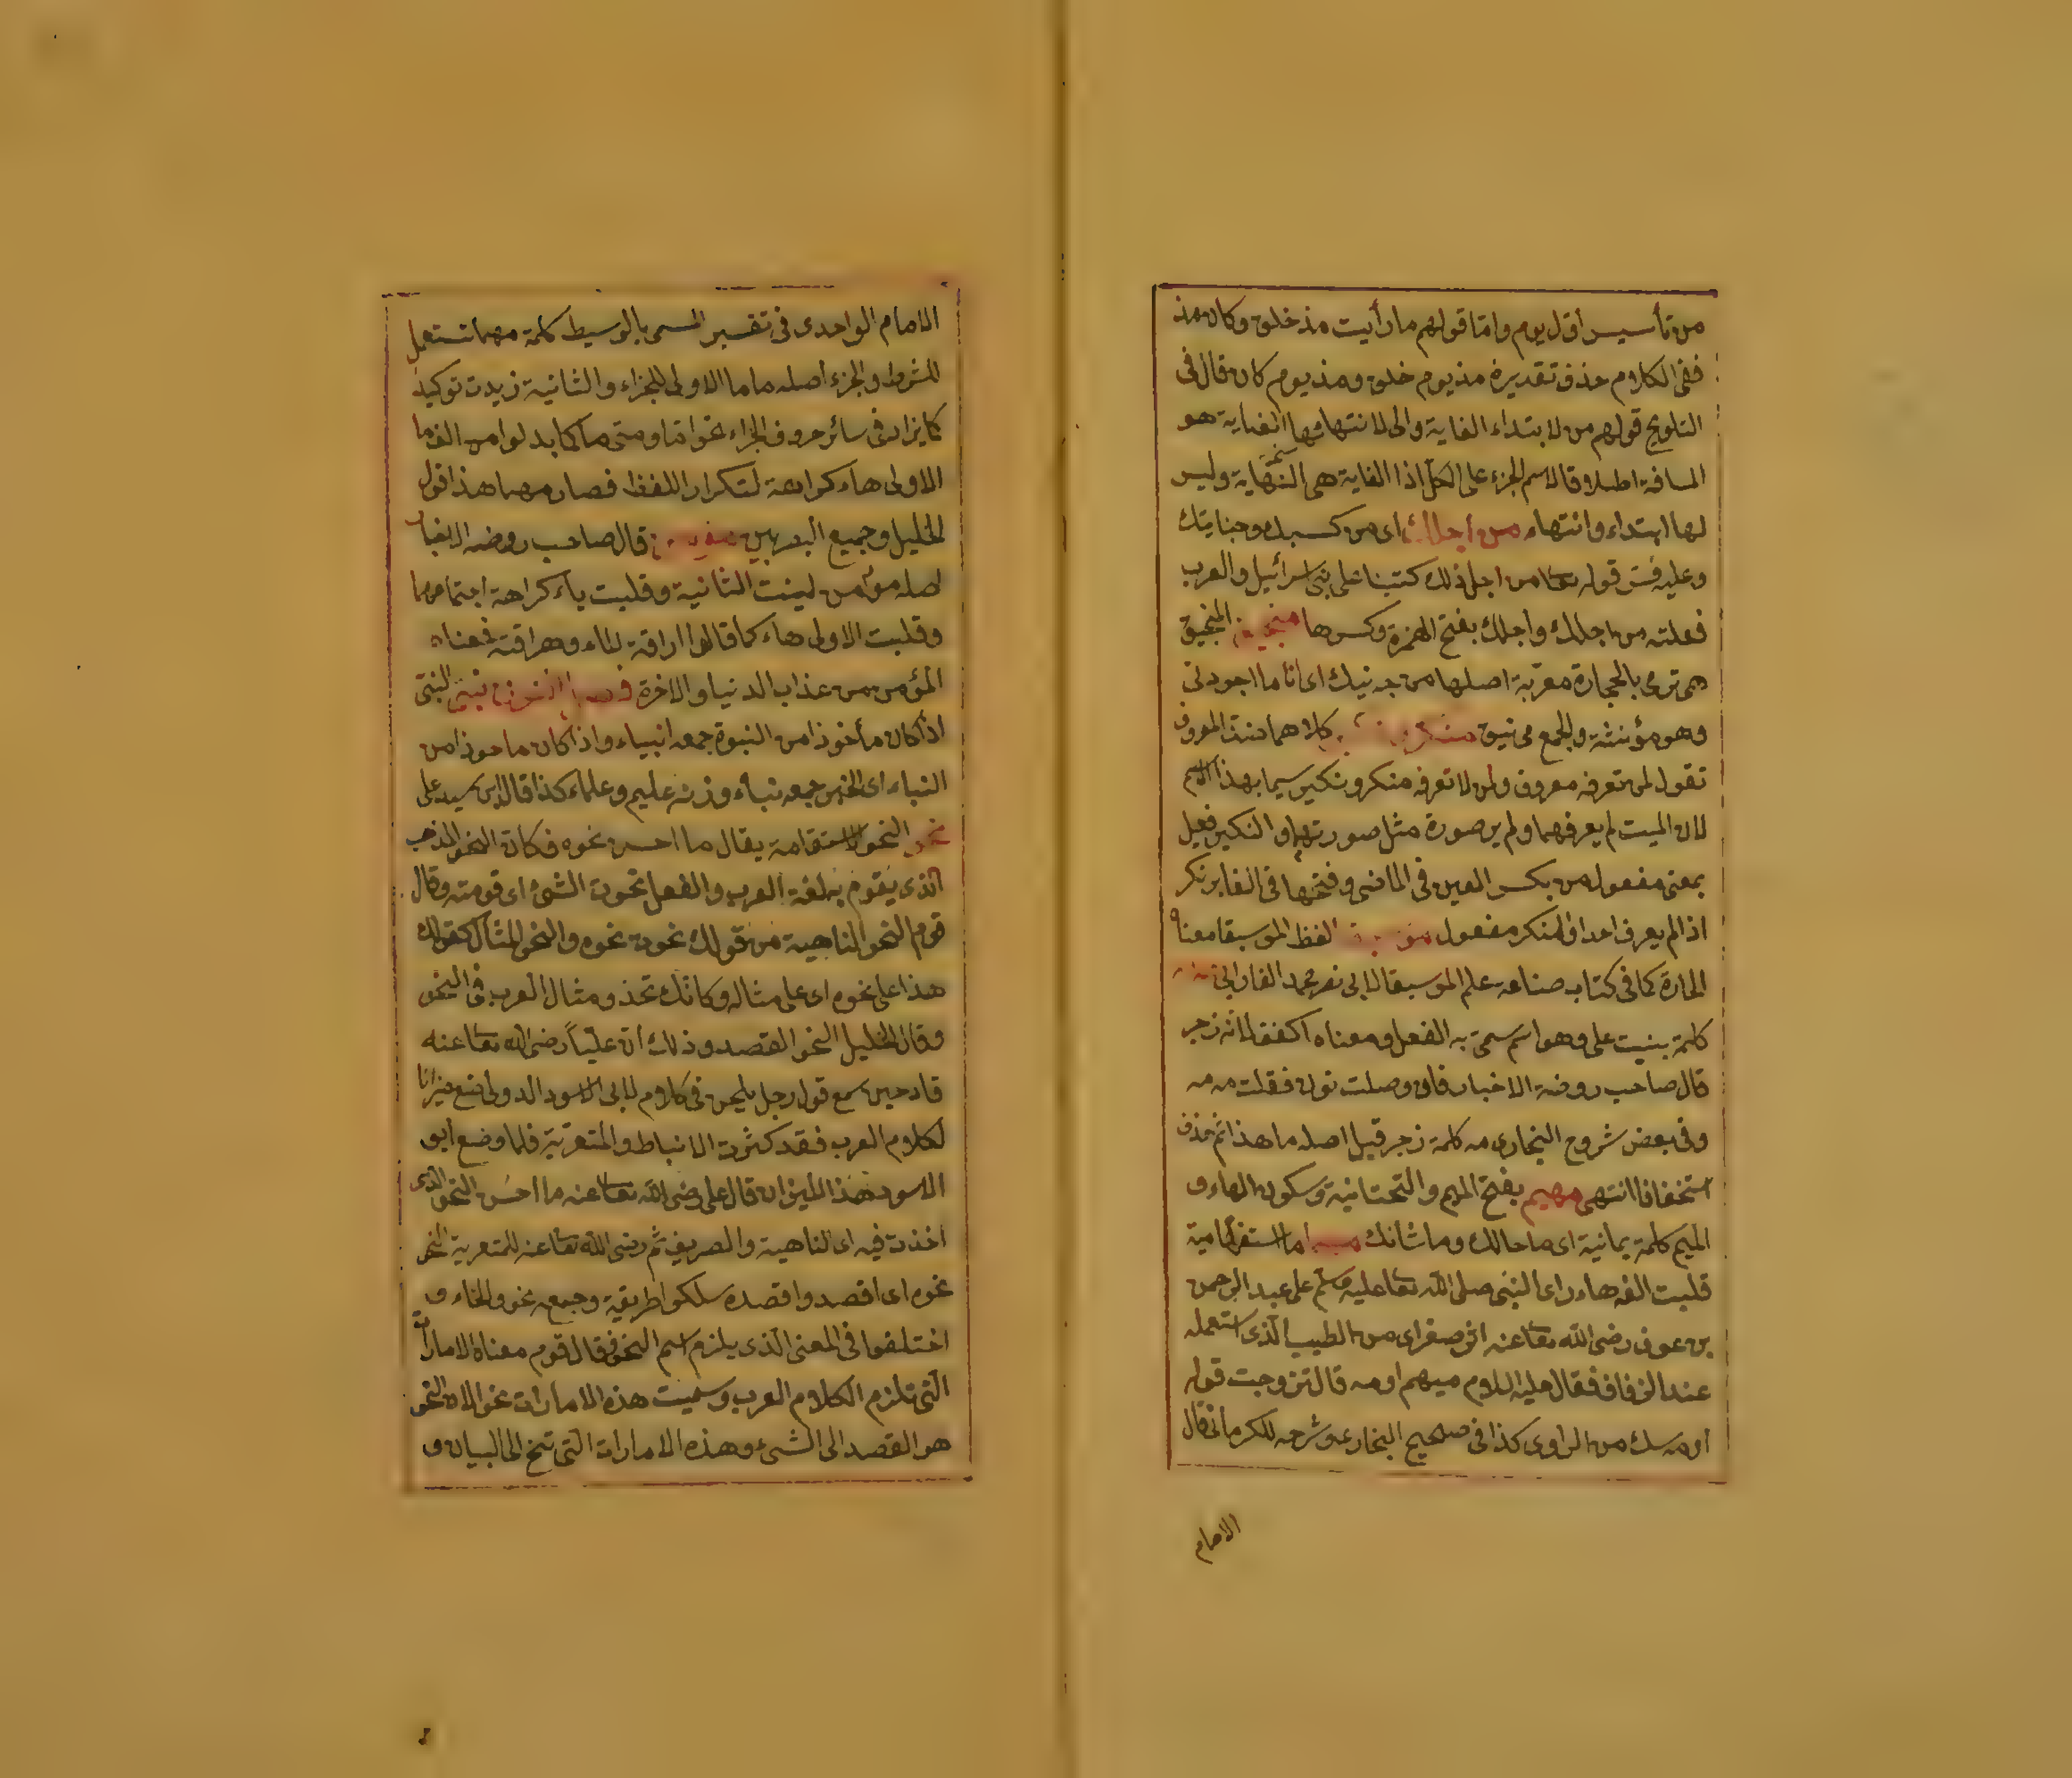 من تأسيس أول يوم واما قولهم ما رأيت مذ خلق وكان مذ
ففى الكلام حذف تقديره مذ يوم خلق ومذ يوم كان قال فى
التلويح قولهم من لابتداء الغاية والى لانتهائها الغاية هو
المسافة اطلاقا لاسم الجزء على الكل اذ الغاية هى النهاية وليس
لها ابتداء وانتهاء من أجلك اى من كسبك وجنايتك
وعليه فسر قوله تعا من اجل ذلك كتبنا على بنى اسرائيل والعرب
فعلته من اجلك واجلك بفتح الهمزة وكسرها منجنيق المنجنيق
هى ترمى بالحجارة معربة اصلها من جه نيك اى انا ما اجودنى
وهو مؤنثة والجمع مجنيق منكر كلاهما ضد المعروف
تقول لمن تعرفه معروف ولمن لا تعرفه منكر ونكير سيما بهذا الاسم
لان الميت لم يعرفهما ولم ير صورة مثل صورتهما والنكير فعيل
بمعنى مفعول من بكسر العين فى الماضى وفتحها فى الغابر نكر
اذا لم يعرف احدا والمنكر مفعول لفظ الموسيقا معناه
الحادة كما فى كتاب صناعة علم الموسيقا لابى نصر محمد الفارابى
كلمة بنيت على وهو اسم سمى به الفعل ومعناه اكفف لانه زجر
قال صاحب روضة الاخبار فان وصلت نون فقلت مه مه
وفى بعض شروح البخارى مه كلمة زجر قيل اصله ما هذا ثم حذف
استخفافا انتهى مهيم بفتح الميم والتحتانية وسكون الهاء و
الميم كلمة يمانية اى ما حالك وما شانك مهما ما استفهامية
قلبت الفه هاء راى النبى صلى الله تعا عليه وسلم على عبد الرحمن
بن عوف رضى الله تعا عنه اثر صفر اى من الطيب الذى استعمله
عند الزفاف فقال عليه السلام ميهم او مه قال تزوجت قوله
او مه شك من الراوى كذا فى صحيح البخارى وشرحه للكرمانى قال
الامام
الامام الواحدى فى تفسير المسمى بالوسيط كلمة مهما تستعمل
للشرط والجزء أصله ما ما الاولى للجزاء والثانية زيدت توكيد
كما يزاد فى سائر حروف الجزاء نحو اما ومتى ما كما بدلوا من الف ما
الاولى هاء كراهة لتكرار اللفظ فصار مهما هذا قول
الخليل وجميع البصريين قال صاحب روضه الاخبار
اصله مؤمن لينت الثانية وقلبت ياء كراهة اجتماعهما
وقلبت الاولى هاء كما قالوا اراقة الماء وهراقته فمعناه
المؤمن من عذاب الدنيا والاخرة النبى
اذا كان مأخوذا من النبوة جمعه انبياء واذا كان ماخوذا من
النباء اى الخبر جمعه نباء وزنه عليم وعلماء كذا قال ابن سيد على
نحو النحو الاستقامة يقال ما احسن نحوه فكان النحو المذهب
الذى يقوم به لغة العرب والفعل نحوت الشئ اى قومته وقال
قوم النحو الناهية من قولك نحوت نحوه والنحو المثال كقولك
هذا على نحوه اى على مثاله وكانك تحذو مثال العرب فى النحو
وقال الخليل النحو القصد وذلك ان علياً رضى الله تعا عنه
قاد حين سمع قول رجل يلحن فى كلام لابى الاسود الدولى ضع ميزانا
لكلام العرب فقد كثرت الانباط والمتعربة فلما وضع ابو
الاسود هذا الميزان قال على رضى الله تعا عنه ما احسن النحو الذى
اخذت فيه اى الناهية والصريف ثم رضى الله تعا عنه للمتعربة انحو
نحوه اى اقصد واقصده سلكوا طريقة وجمعه نحو والخاء و
اختلفوا فى المعنى الذى يلزم اسم النحو فقال قوم معناه الامارات
التى تلزم الكلام العرب وسميت هذه الامارات نحو الان النحو
هو القصد الى الشئ وهذه الامارات التى تنح الى البيان و